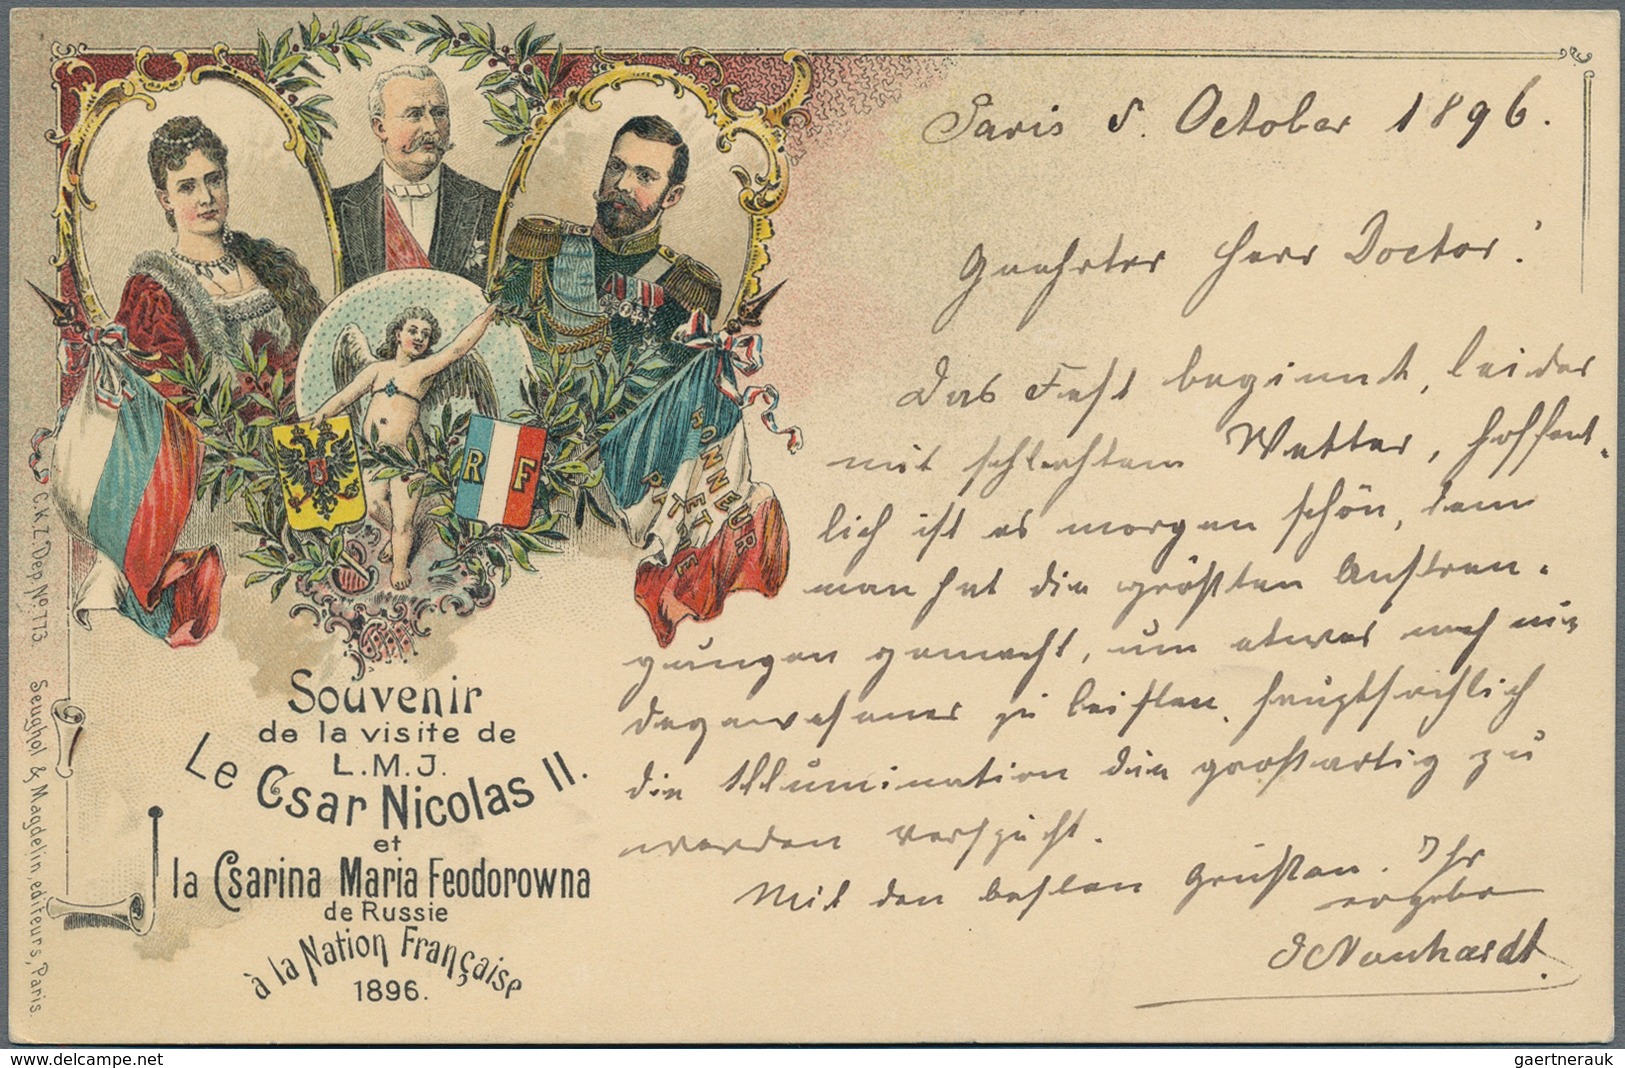 Paris 5. October 1896.
Geehrter Herr Doctor!
Das Fest beginnt, leider
mit schlechtem Wetter, hoffent-
lich ist es morgen schön, denn
man hat die größten Anstren-
gungen gemacht, um etwas noch nie
dagewesenes zu leisten, hauptsächlich
die Illumination die großartig zu
werden verspricht.
Mit den besten Grüßen. Ihr
ergebe
HONNEUR
ET
PATRIE
R F
Souvenir
de la visite de
L.M.J.
Le Csar Nicolas II.
et
la Csarina Maria Feodorowna
de Russie
à la Nation Française
1896.
C.K.Z. Dep. No. 773. Seughol & Magdelin, editeurs, Paris.
gaertnerauk
delcampe.net